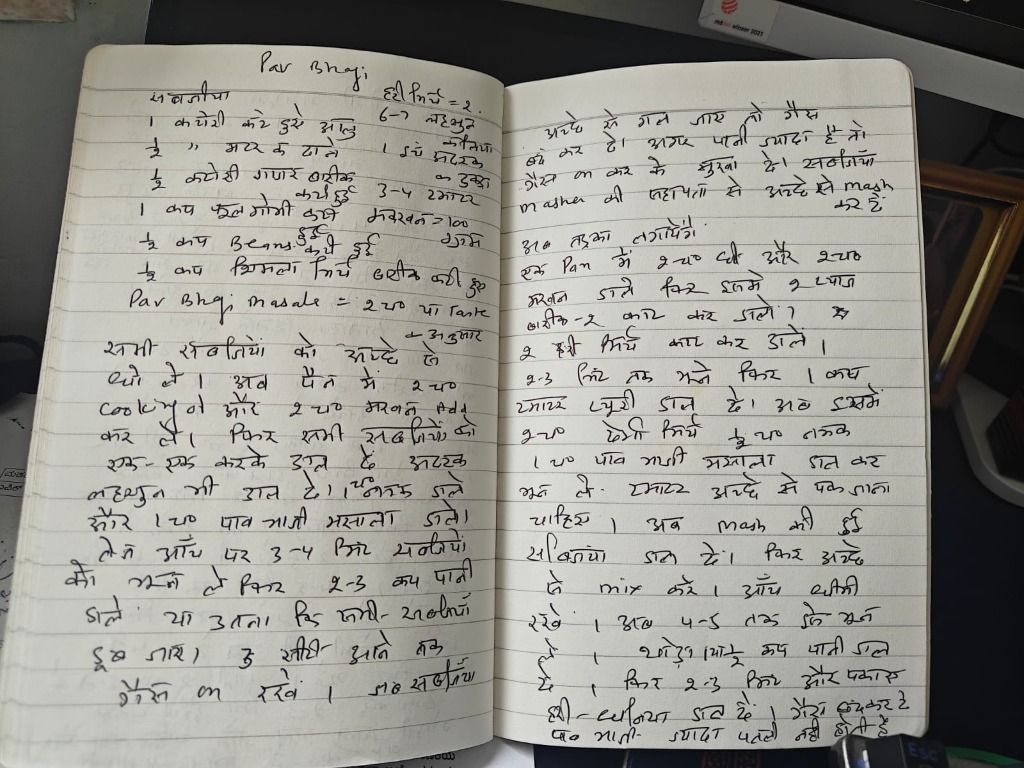 Pav Bhaji
सब्जीया
हरी मिर्च = 2.
1 कटोरी कटे हुए आलु
6-7 लहसुन
कलिया
½ " मटर के दाने
1 इंच अदरक
का टुकडा
½ कटोरी गाजर बारीक
कटी हुई
3-4 टमाटर
1 कप फुलगोभी कटी
हुई
मक्खन = 100
ग्राम
½ कप Beans. कटी हुई
½ कप शिमला मिर्च बारीक कटी हुई
Pav Bhaji masale = 2 च० या Taste
के अनुसार
सभी सब्जियों को अच्छे से
धो ले। अब पैन में 2 च०
cooking और 2 च० मक्खन Add
कर लें। फिर सभी सब्जियों को
एक-एक करके डाल दें अदरक
लहशुन भी डाल दें। 1 च० नमक डाले
और 1 च० पाव भाजी मसाला डाले।
तेज आँच पर 3-4 मिंट सब्जियों
को भुन ले फिर 2-3 कप पानी
डाले या उतना कि सभी सब्जियाँ
डूब जाए। 3 सीटी आने तक
गैस on रखें। जब सब्जियाँ
अच्छे से गल जाए तो गैस
बंद कर दें। अगर पानी ज्यादा है तो
गैस on कर के सुखा दे। सब्जियाँ
masher की सहायता से अच्छे से mash
कर दें
अब तड़का लगायेंगे
एक Pan में 2 च० घी और 2 च०
मक्खन डाले फिर इसमे 2 प्याज
बारीक-2 काट कर डाले।
2 हरी मिर्च काट कर डाले।
2-3 मिंट तक भुने फिर 1 कप
टमाटर प्यूरी डाल दे। अब इसमें
2 च० देगी मिर्च ½ च० नमक
1 च० पाव भाजी मसाला डाल कर
भुन ले. टमाटर अच्छे से पक जाना
चाहिए। अब mash की हुई
सब्जियां डाल दें। फिर अच्छे
से mix करे। आँच धीमी
रखें। अब 4-5 तक इसे भुन
ले। 1 या ½ कप पानी डाल
दें। फिर 2-3 मिंट और पकाए
हरी-धनिया डाल दें। गैस बन्द कर दे
पाव भाजी ज्यादा पतली नही होती है
winner 2021
Esc